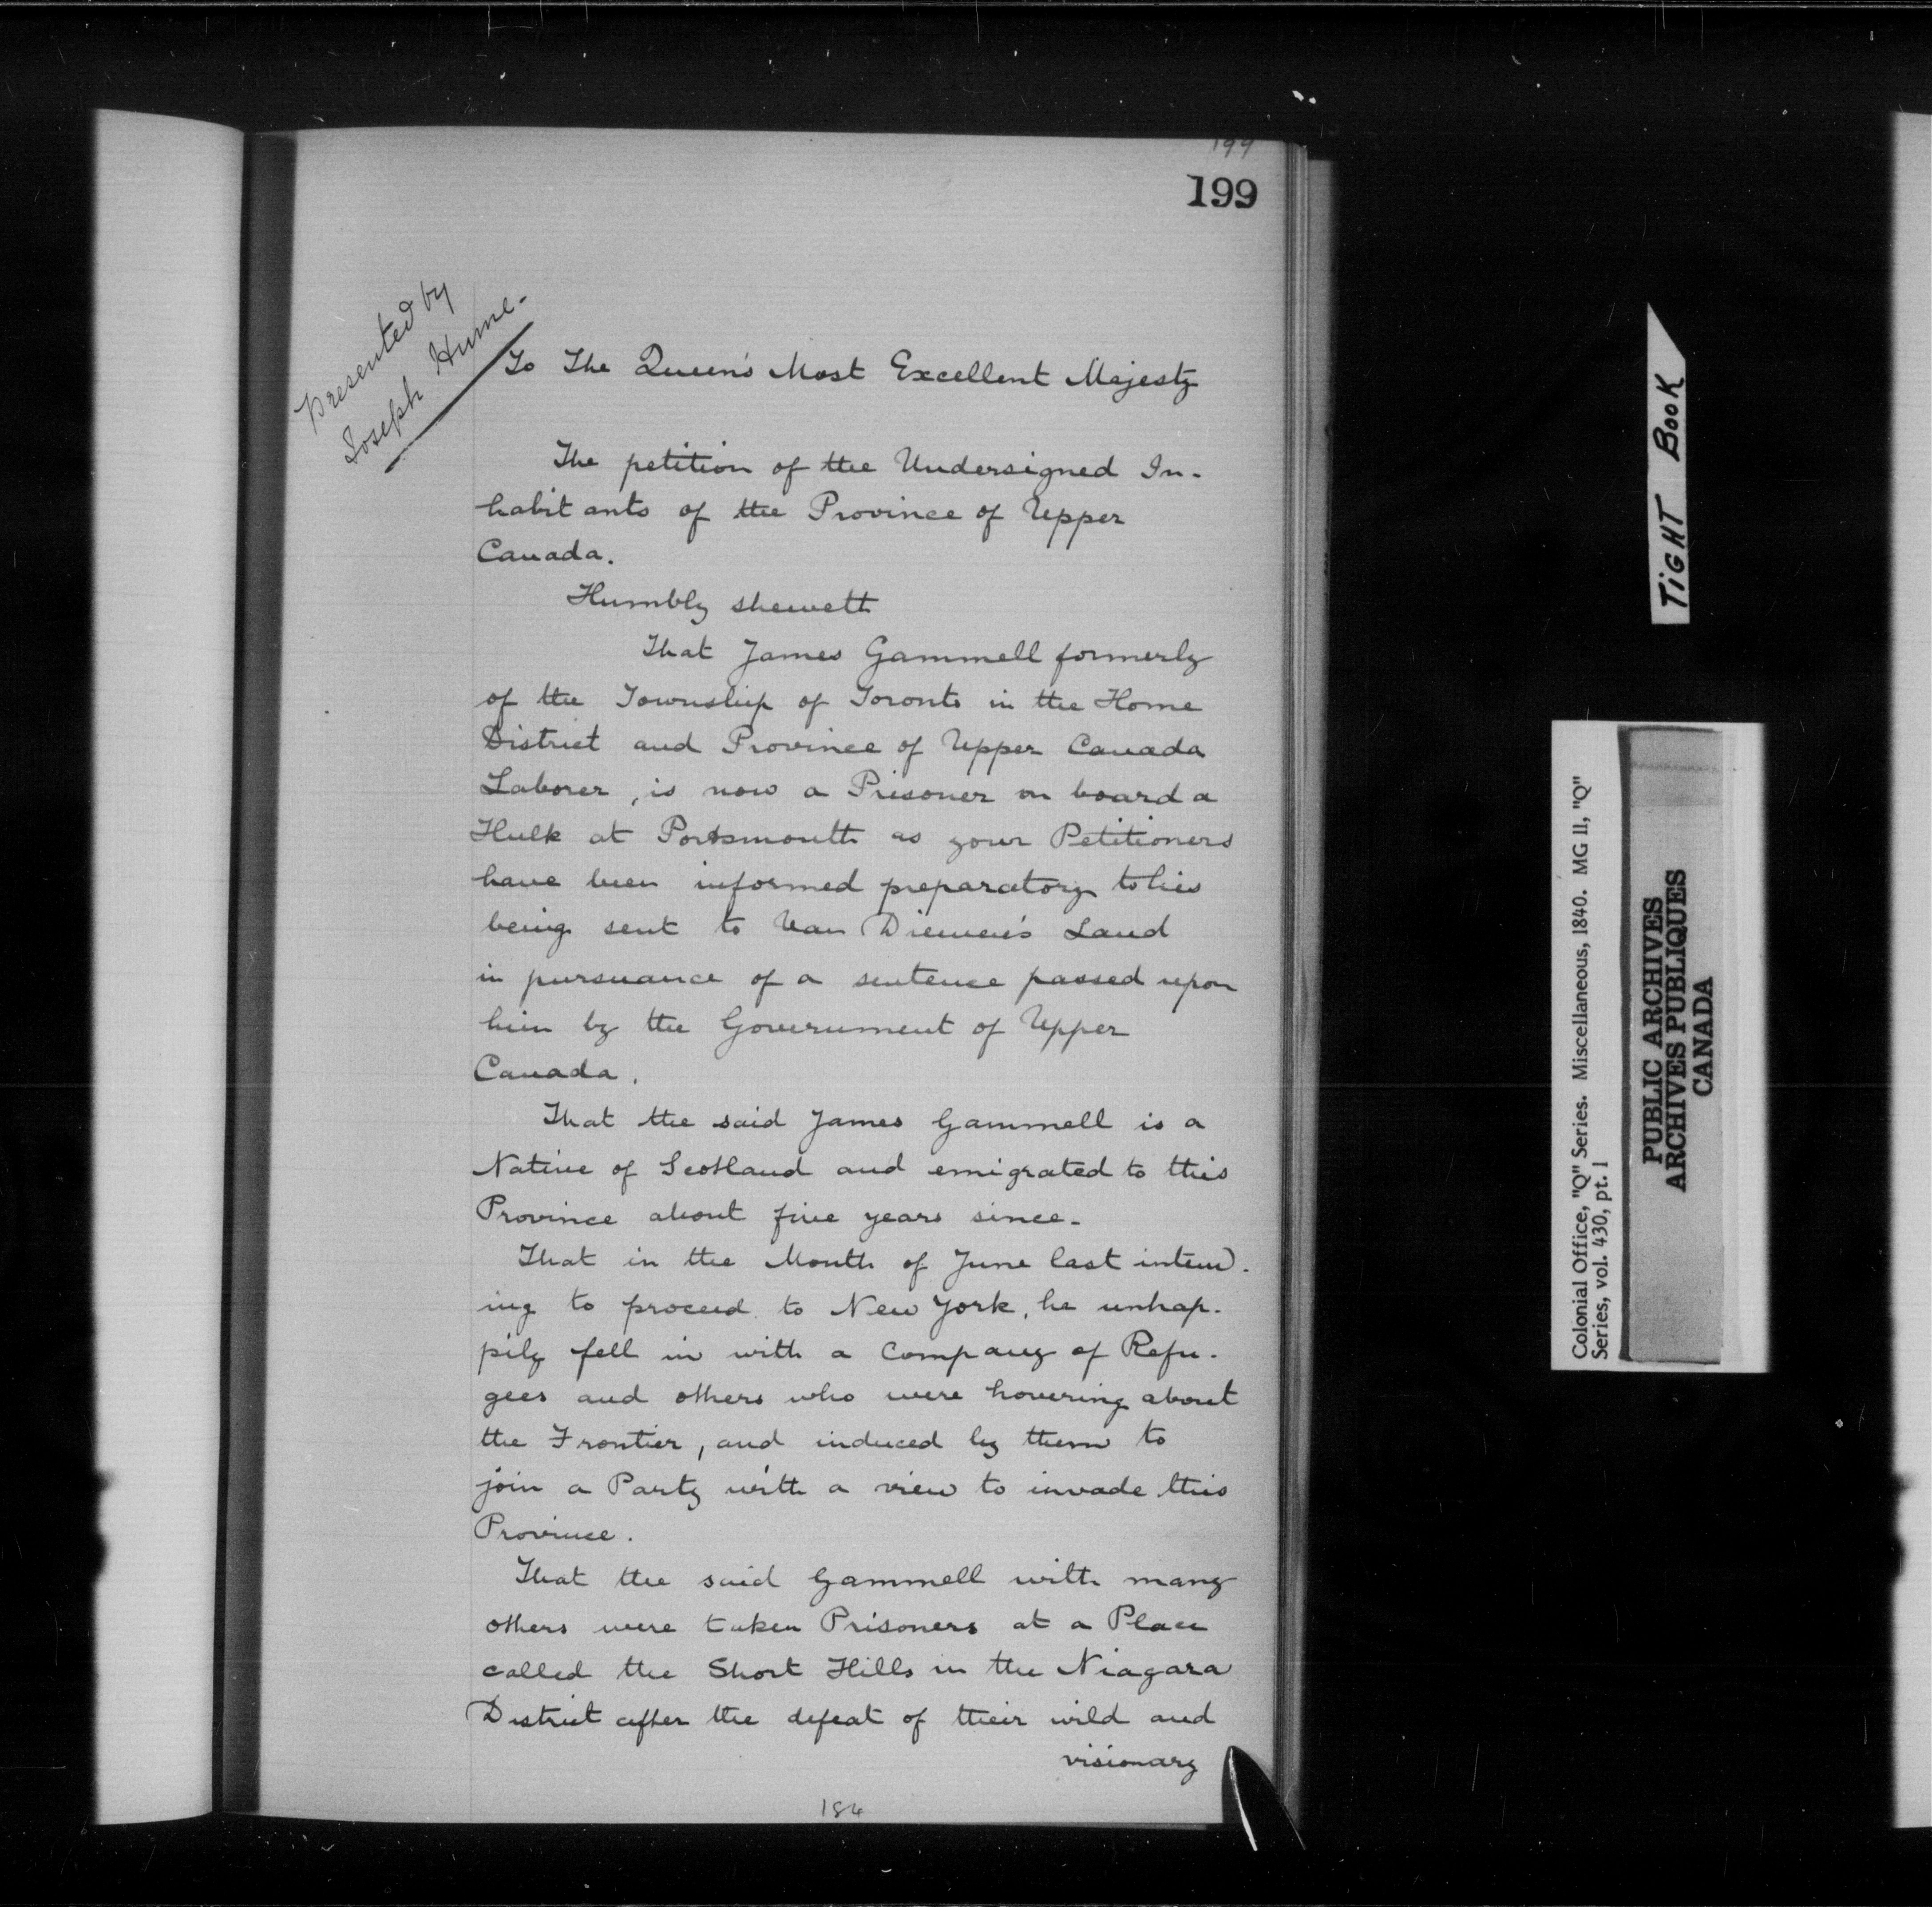 199
199
Presented by
Joseph Hume.
To The Queen's Most Excellent Majesty
The petition of the Undersigned In-
habitants of the Province of Upper
Canada.
Humbly sheweth
That James Gammell formerly
of the Township of Toronto in the Home
District and Province of Upper Canada
Laborer, is now a Prisoner on board a
Hulk at Portsmouth as your Petitioners
have been informed preparatory to his
being sent to Van Diemen's Land
in pursuance of a sentence passed upon
him by the Government of Upper
Canada.
That the said James Gammell is a
Native of Scotland and emigrated to this
Province about five years since.
That in the Month of June last intend-
ing to proceed to New York, he unhap-
pily fell in with a Company of Refu-
gees and others who were hovering about
the Frontier, and induced by them to
join a Party with a view to invade this
Province.
That the said Gammell with many
others were taken Prisoners at a Place
called the Short Hills in the Niagara
District after the defeat of their wild and
visionary
184
TIGHT BOOK
Colonial Office, "Q" Series. Miscellaneous, 1840. MG 11, "Q"
Series, vol. 430, pt. 1
PUBLIC ARCHIVES
ARCHIVES PUBLIQUES
CANADA